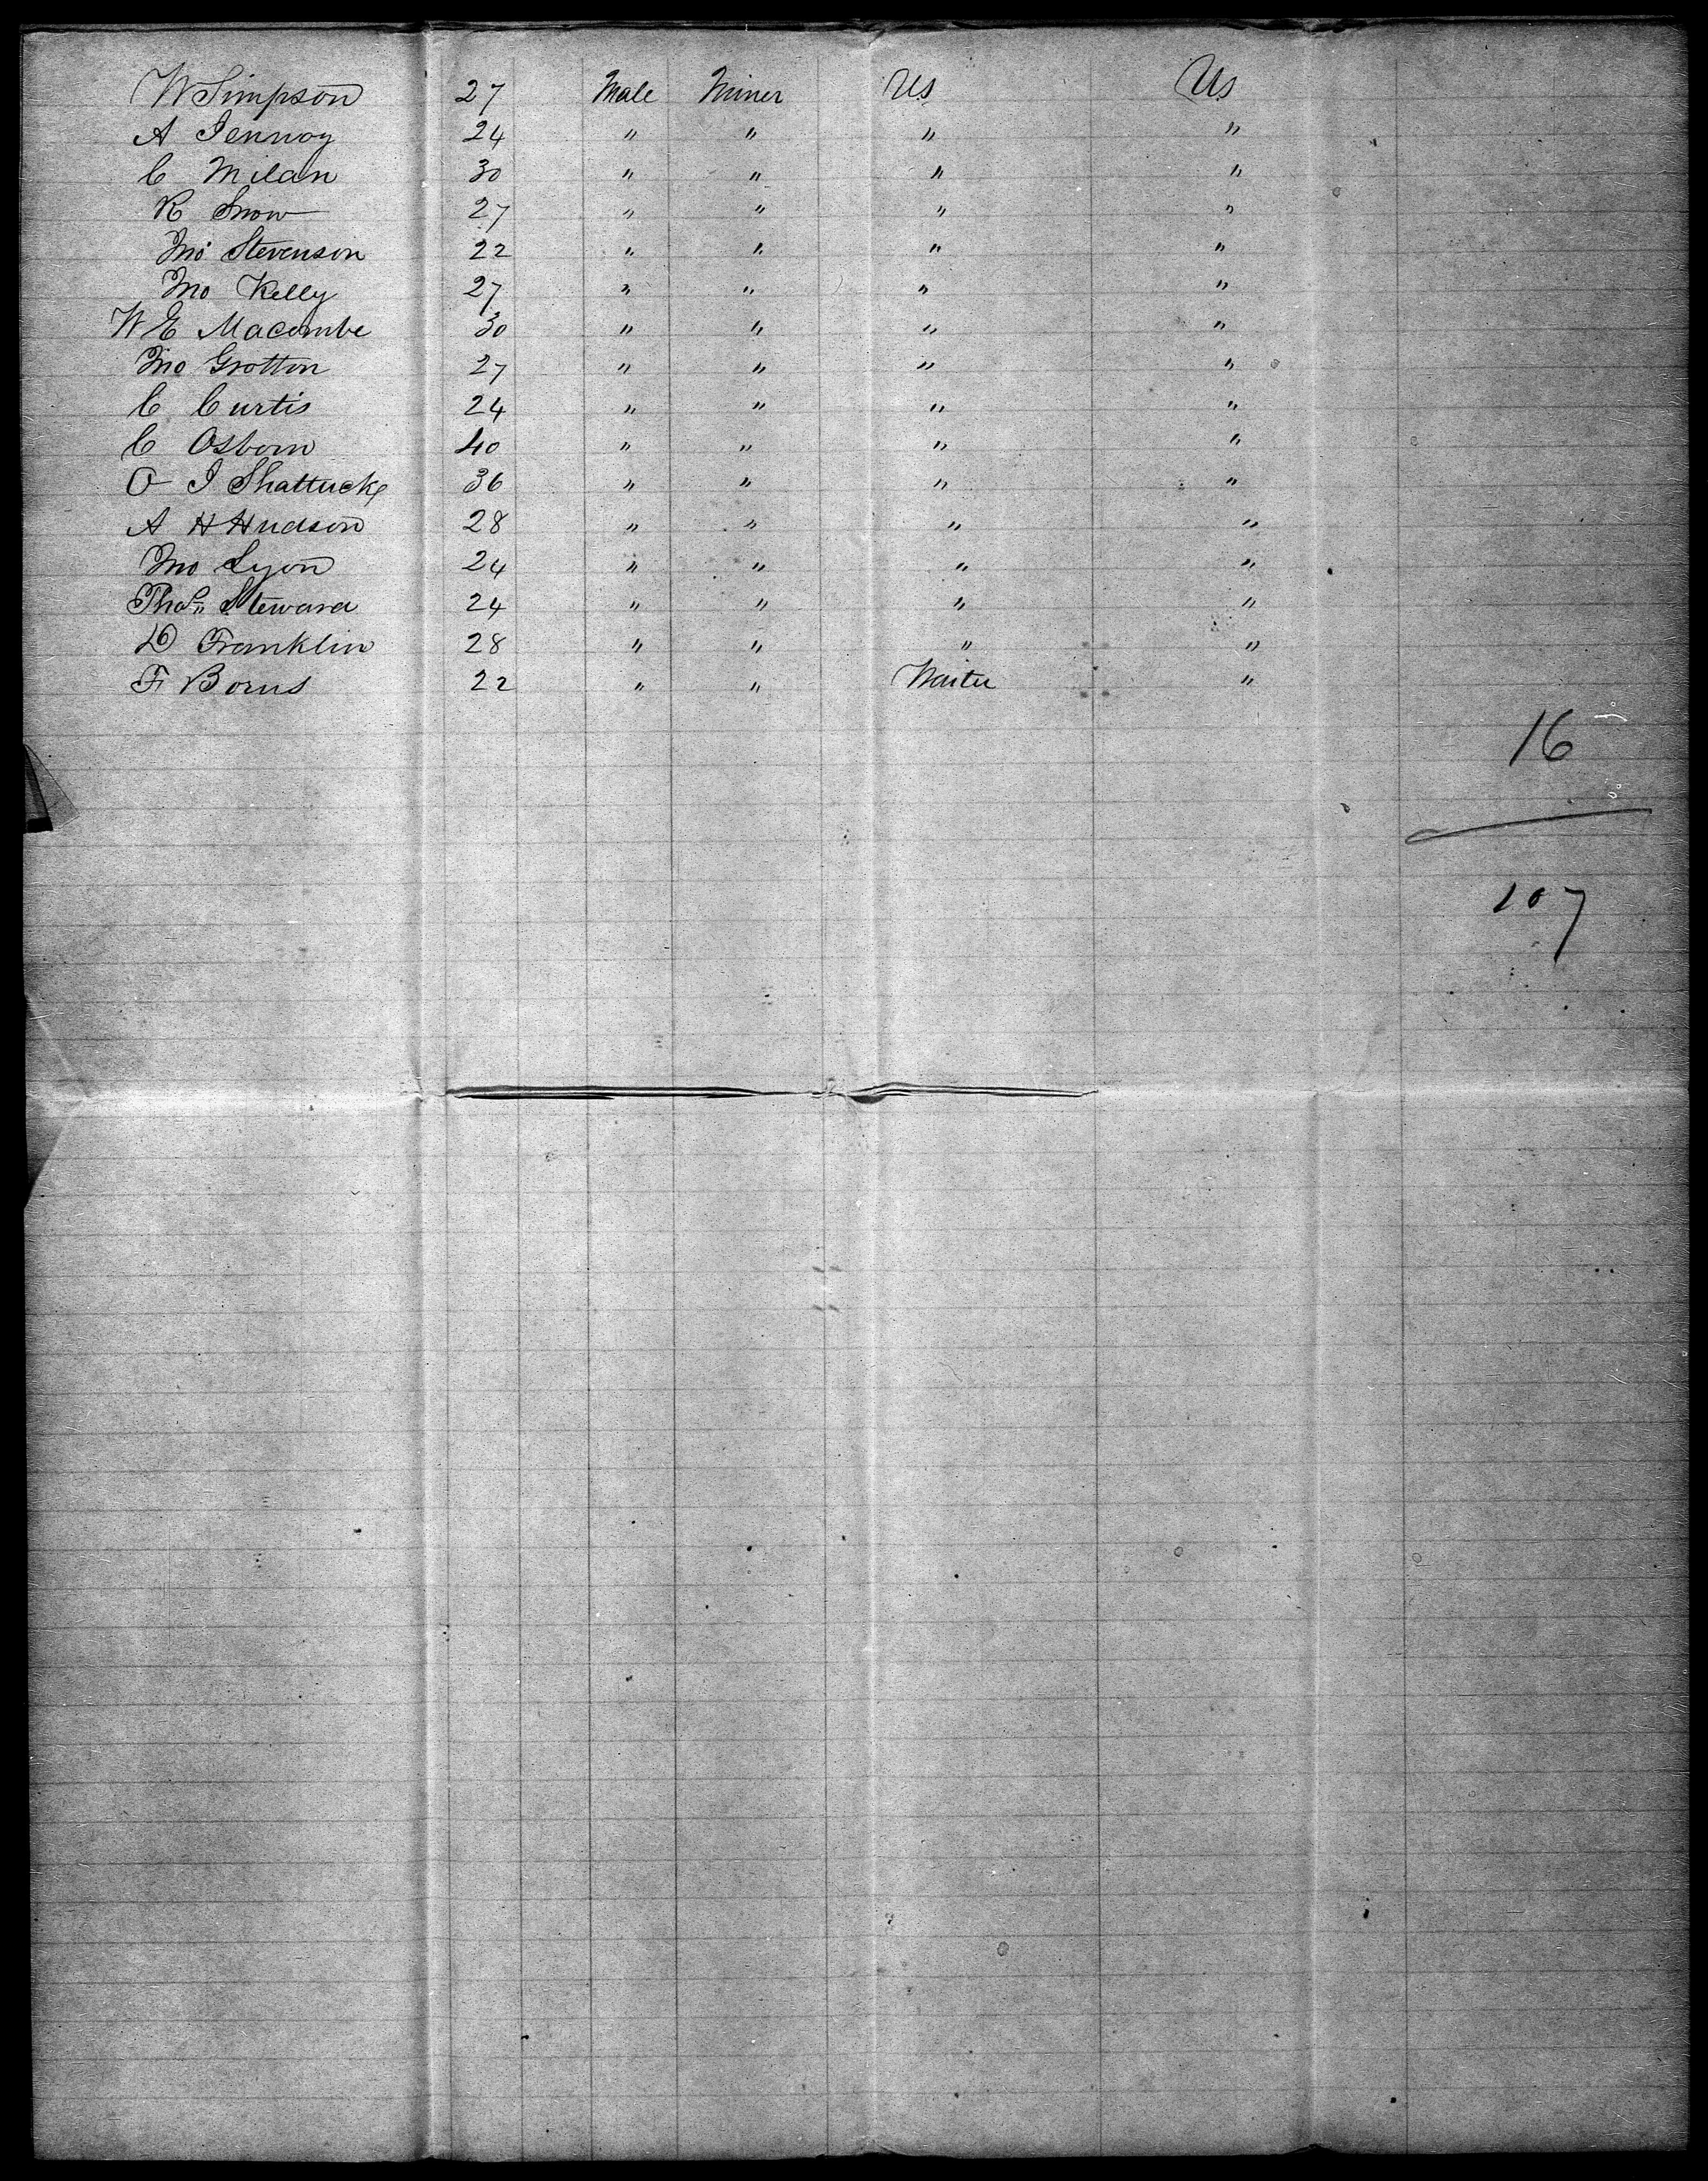 W Simpson 27 Male Miner US US
A Jennoy 24 " " " "
C Milan 30 " " " "
R Snow 27 " " " "
Jno Stevenson 22 " " " "
Jno Kelly 27 " " " "
W E Macombe 30 " " " "
Jno Grotton 27 " " " "
C Curtis 24 " " " "
C Osborn 40 " " " "
O J Shattuck 36 " " " "
A H Hudson 28 " " " "
Jno Lyon 24 " " " "
Thos Steward 24 " " " "
D Franklin 28 " " " "
F Borns 22 " " Waiter "
16
107